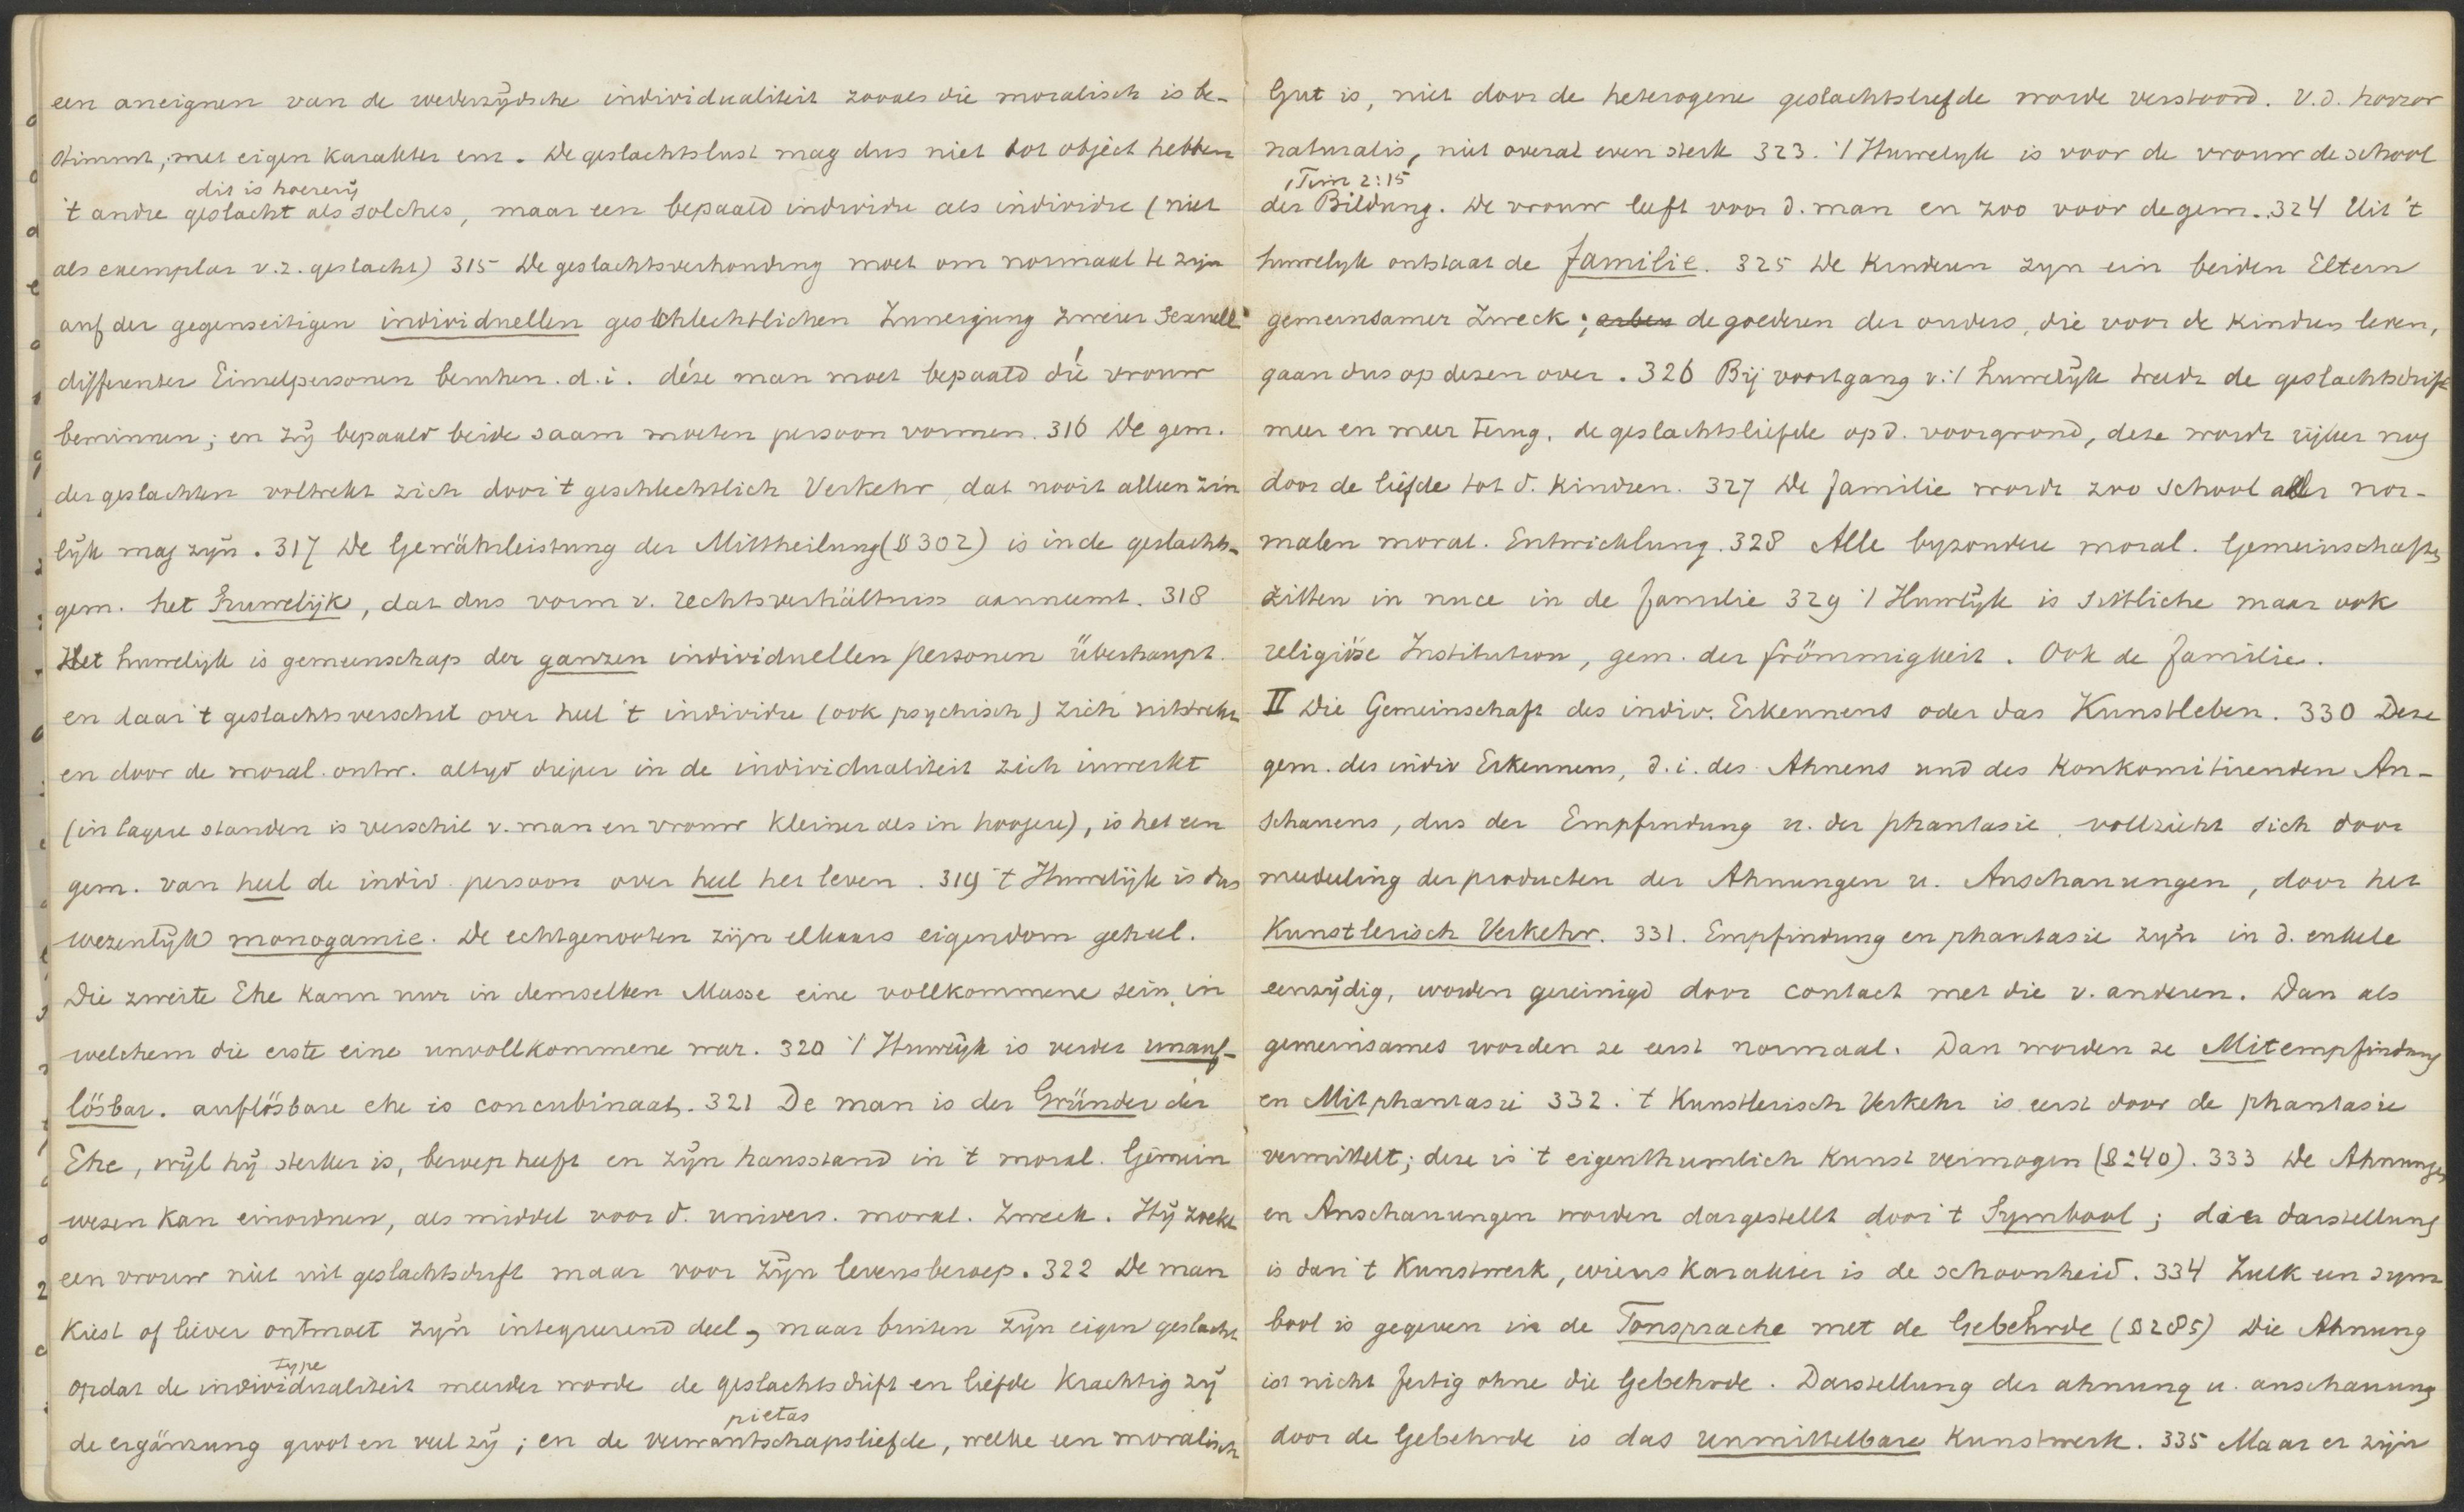 een aneignen van de wederzijdsche individualiteit zooals die moralisch is be-
stimmt, met eigen karakter enz. De geslachtslust mag dus niet tot object hebben
dit is hoererij
't andre geslacht als solches, maar een bepaald individu als individu (niet
als exemplar v.z. geslacht) 315 De geslachtsverhouding moet om normaal te zijn
auf der gegenseitigen individuellen geschlechtlichen Zuneigung zweier Sexuell
differenter Einzelpersonen beruhen. d.i. déze man moet bepaald díé vrouw
beminnen; en zij bepaald beide saam moeten persoon vormen. 316 De gem.
der geslachten voltrekt zich door 't geschlechtlich Verkehr, dat nooit alleen zin
lijk mag zijn. 317 De Gewährleistung der Mittheilung (§ 302) is in de geslachts-
gem. het huwelijk, dat dus vorm v. rechtsverhältniss aanneemt. 318
Het huwelijk is gemeenschap der ganzen individuellen Personen überhaupt.
en daar 't geslachtsverschil over heel 't individu (ook psychisch) zich uitstrekt
en door de moral. ontw. altijd dieper in de individualiteit zich inwerkt
(in lagere standen is verschil v. man en vrouw kleiner als in hoogere), is het een
gem. van heel de indiv. persoon over heel het leven. 319 't Huwelijk is dus
wezenlijk monogamie. De echtgenooten zijn elkaars eigendom geheel.
Die zweite Ehe kann nur in demselben Masse eine vollkommene sein, in
welchem die erste eine unvollkommene war. 320 't Huwelijk is verder unauf-
lösbar. auflösbare ehe is concubinaat. 321 De man is der Gründer der
Ehe, wijl hij sterker is, beroep heeft en zijn hausstand in 't moral. Gemein
wesen kan einordnen, als middel voor d. univers. moral. Zweck. Hij zoekt
een vrouw niet uit geslachtsdrift maar voor zijn levensberoep. 322 De man
kiest of liever ontmoet zijn integreerend deel, maar buiten zijn eigen geslacht
type
opdat de individualiteit meerder worde de geslachtsdrift en liefde krachtig zij
pietas
de ergänzung groot en veel zij; en de verwantschapsliefde, welke een moralisch
Gut is, niet door de heterogene geslachtsliefde worde verstoord. V.d. horror
naturalis, niet overal even sterk 323. 't Huwelijk is voor de vrouw de school
1 Tim 2:15
der Bildung. De vrouw leeft voor d. man en zoo voor de gem. 324 Uit 't
huwelijk ontstaat de familie. 325 De Kinderen zijn ein beiden Eltern
gemeinsamer Zweck; erben de goederen der ouders, die voor de kindren leven,
gaan dus op dezen over. 326 Bij voortgang v. 't huwelijk treedt de geslachtsdrift
meer en meer terug. de geslachtsliefde op d. voorgrond, deze wordt rijker nog
door de liefde tot d. kindren. 327 De familie wordt zoo school aller nor-
malen moral. Entwicklung. 328 Alle byzondere moral. Gemeinschaften
zitten in nuce in de familie 329 't Huwlijk is sittliche maar ook
religiöse Institution, gem. der frömmigkeit. Ook de familie.
II Die Gemeinschaft des indiv. Erkennens oder das Kunstleben. 330 Deze
gem. des indiv Erkennens, d.i. des Ahnens und des Konkomitirenden An-
schauens, dus der Empfindung u. der phantasie, vollzieht sich door
mededeling der producten der Ahnungen u. Anschauungen, door het
Kunstlerisch Verkehr. 331. Empfindung en phantasie zijn in d. enkele
eenzijdig, worden gereinigd door contact met die v. anderen. Dan als
gemeinsames worden ze eerst normaal. Dan worden ze Mitempfindung
en Mitphantasie 332. 't Kunstlerisch Verkehr is eerst door de phantasie
vermittelt; deze is 't eigenthumlich Kunst vermogen (§ 240). 333 De Ahnungen
en Anschauungen worden dargestellt door 't Symbool; die darstellung
is dan 't Kunstwerk, wiens karakter is de schoonheid. 334 Zulk een sym
bool is gegeven in de Tonsprache met de Gebehrde (§ 285) Die Ahnung
ist nicht fertig ohne die Gebehrde. Darstellung der ahnung u. anschauung
door de Gebehrde is das unmittelbare Kunstwerk. 335 Maar er zijn